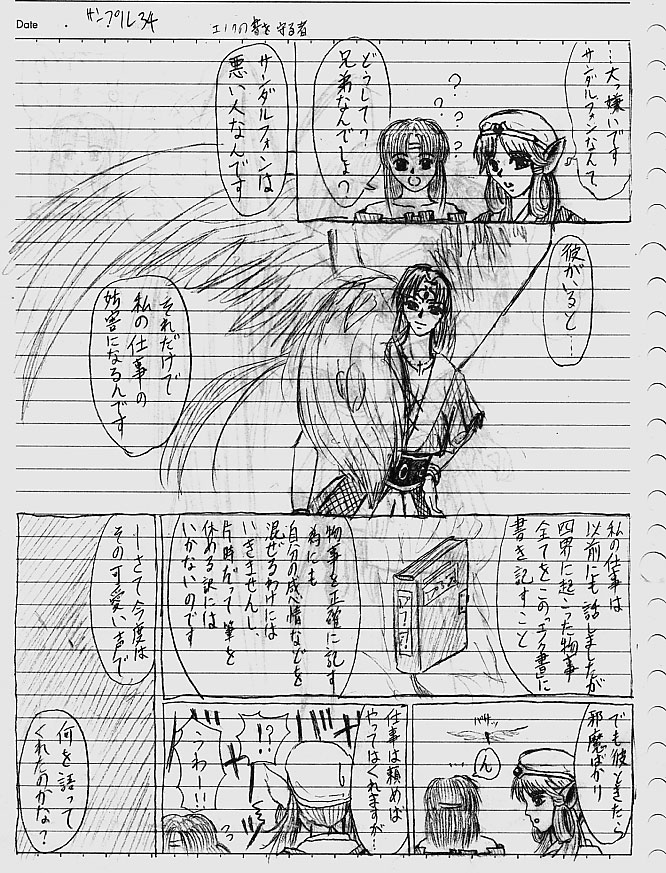 Date
サンプル34
エノクの書を守る者
…大っ嫌いです
サンダルフォンなんて
?
?
?
?
どうして?
兄弟なんでしょ?
サンダルフォンは
悪い人なんです
彼がいると…
それだけで
私の仕事の
妨害になるんです
私の仕事は
以前にも話しましたが
四界に起こった物事
全てをこの“エノク書”に
書き記すこと
物事を正確に記す
為にも
自分の感情などを
混ぜるわけには
いきませんし、
片時だって筆を
休める訳には
いかないのです
でも彼ときたら
邪魔ばかり
バサッ
ん
…
仕事は頼めば
やってはくれますが…
!?
うわー!!
―さて今度は
その可愛い声で
何を語って
くれたのかな?